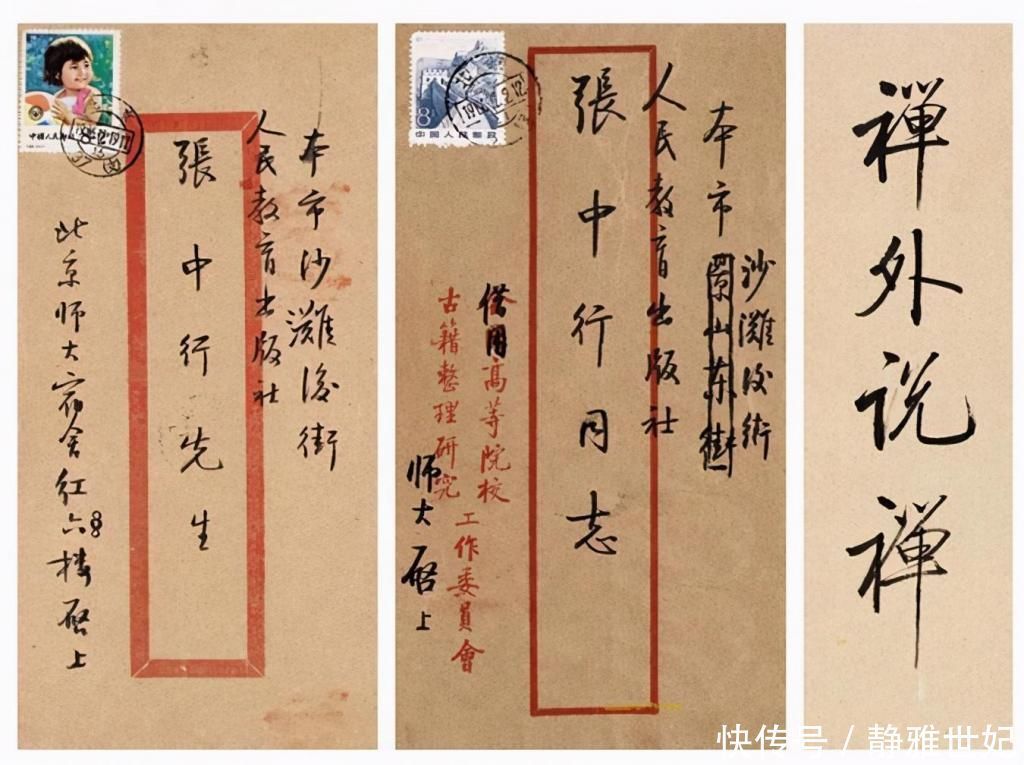 本市沙灘後街
人民教育出版社
張中行先生
北京师大宿舍红六楼 启上
中國人民郵政
本市景山东街
沙灘後街
人民教育出版社
張中行同志
借用高等院校
古籍整理研究
工作委員會
师大 启上
8
中国人民邮政
北
禅外说禅
快传号/静雅世妃